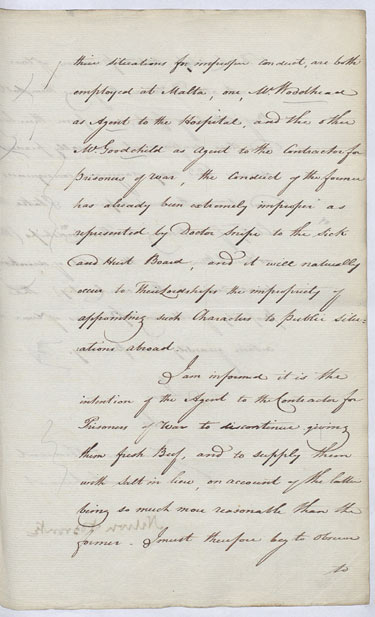 their situations for improper conduct, are both
employed at Malta; one, Mr. Woodhead
as Agent to the Hospital, and the other
Mr. Goodchild as Agent to the Contractor for
Prisoners of War; the Conduct of the former
has already been extremely improper as
represented by Doctor Snipe to the Sick
and Hurt Board, and it will naturally
occur to Their Lordships the impropriety of
appointing such Characters to Public situ-
ations abroad.
I am informed it is the
intention of the Agent to the Contractor for
Prisoners of War to discontinue giving
them fresh Beef, and to supply them
with salt in lieu, on account of the latter
being so much more reasonable than the
former. I must therefore beg to observe
to